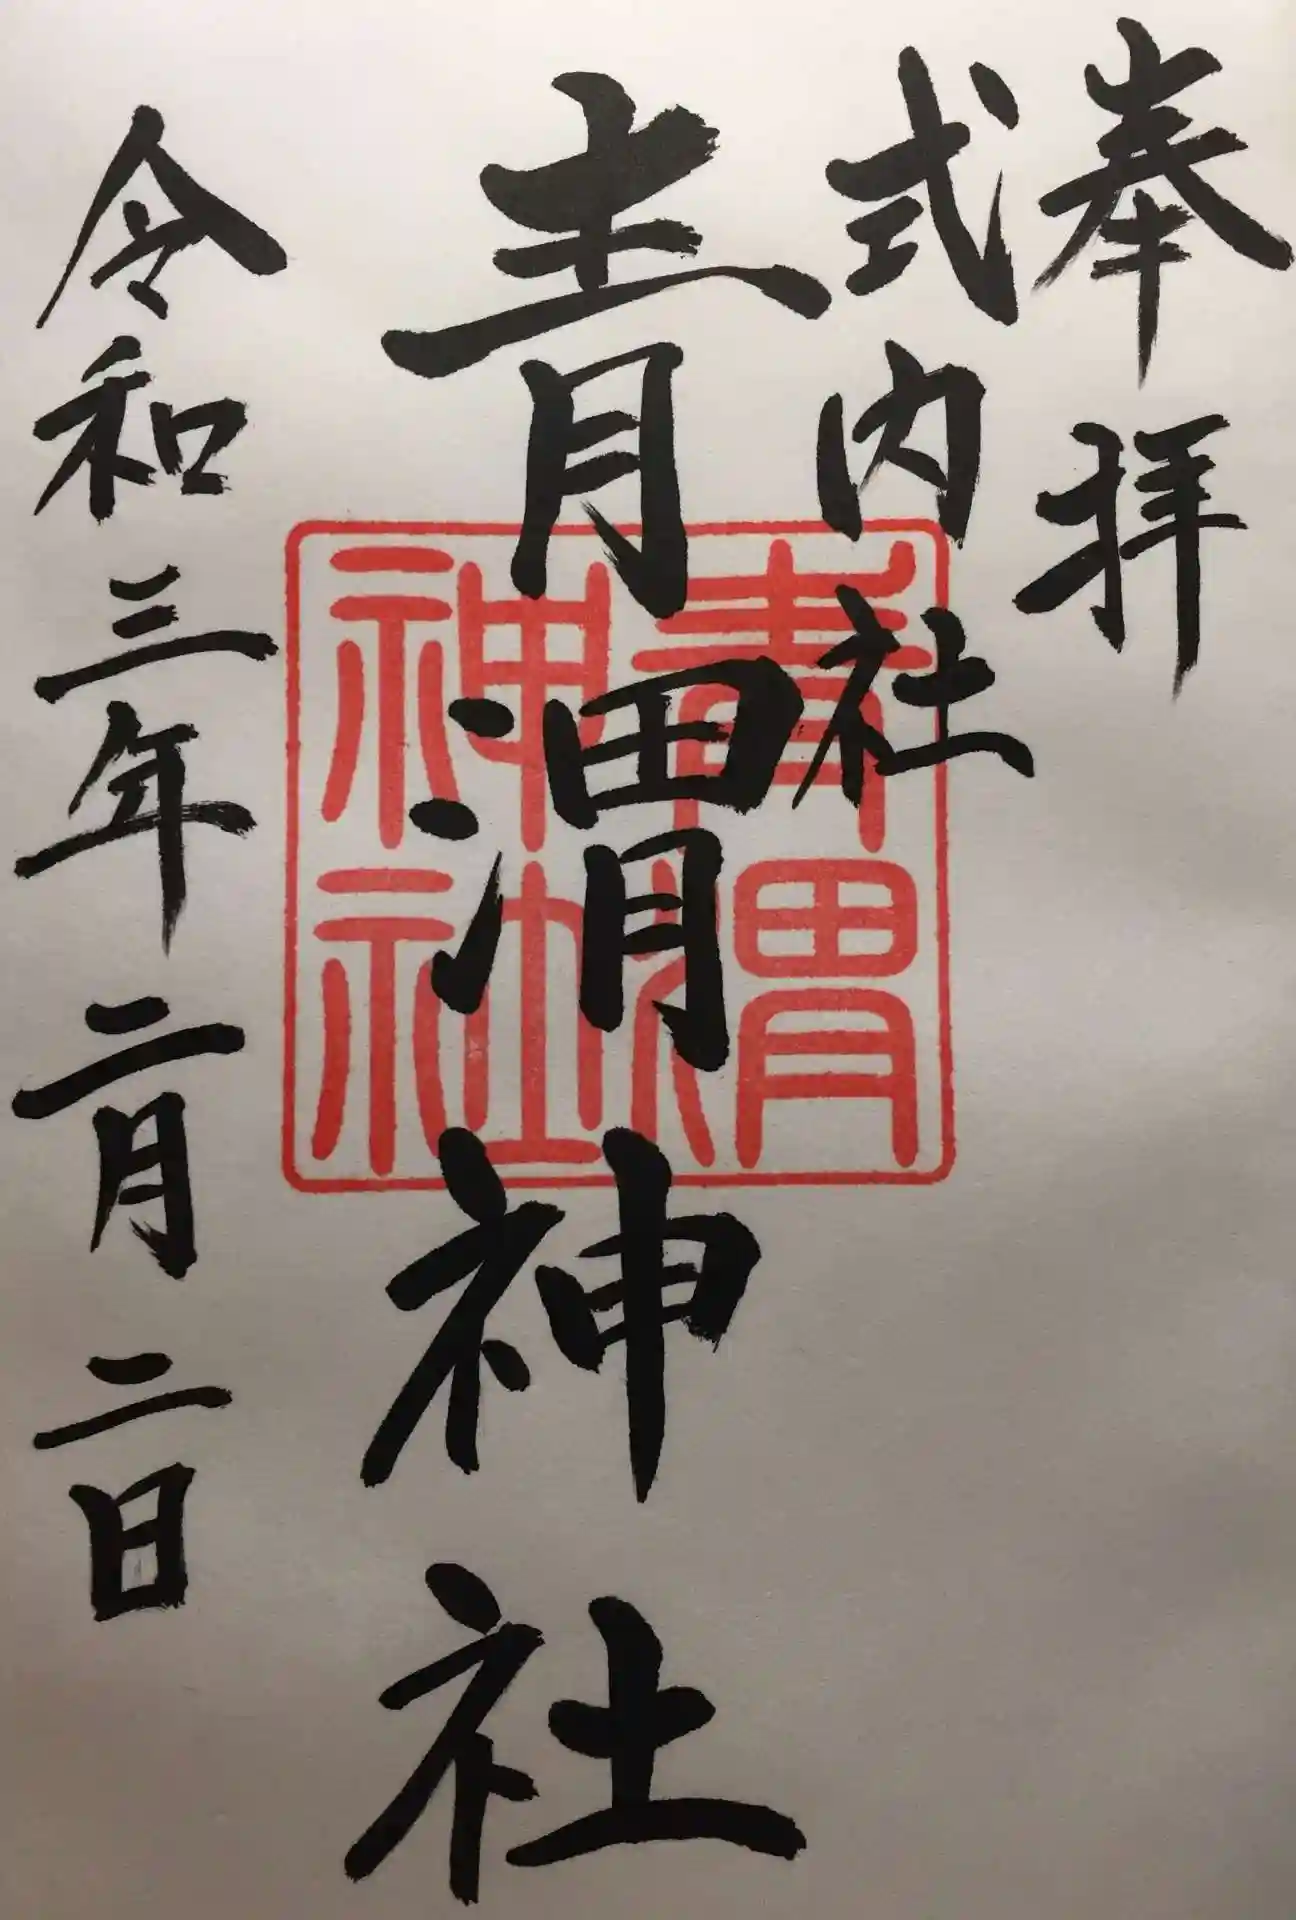 奉拝
式内社
青渭神社
令和三年二月二日
青渭
神社